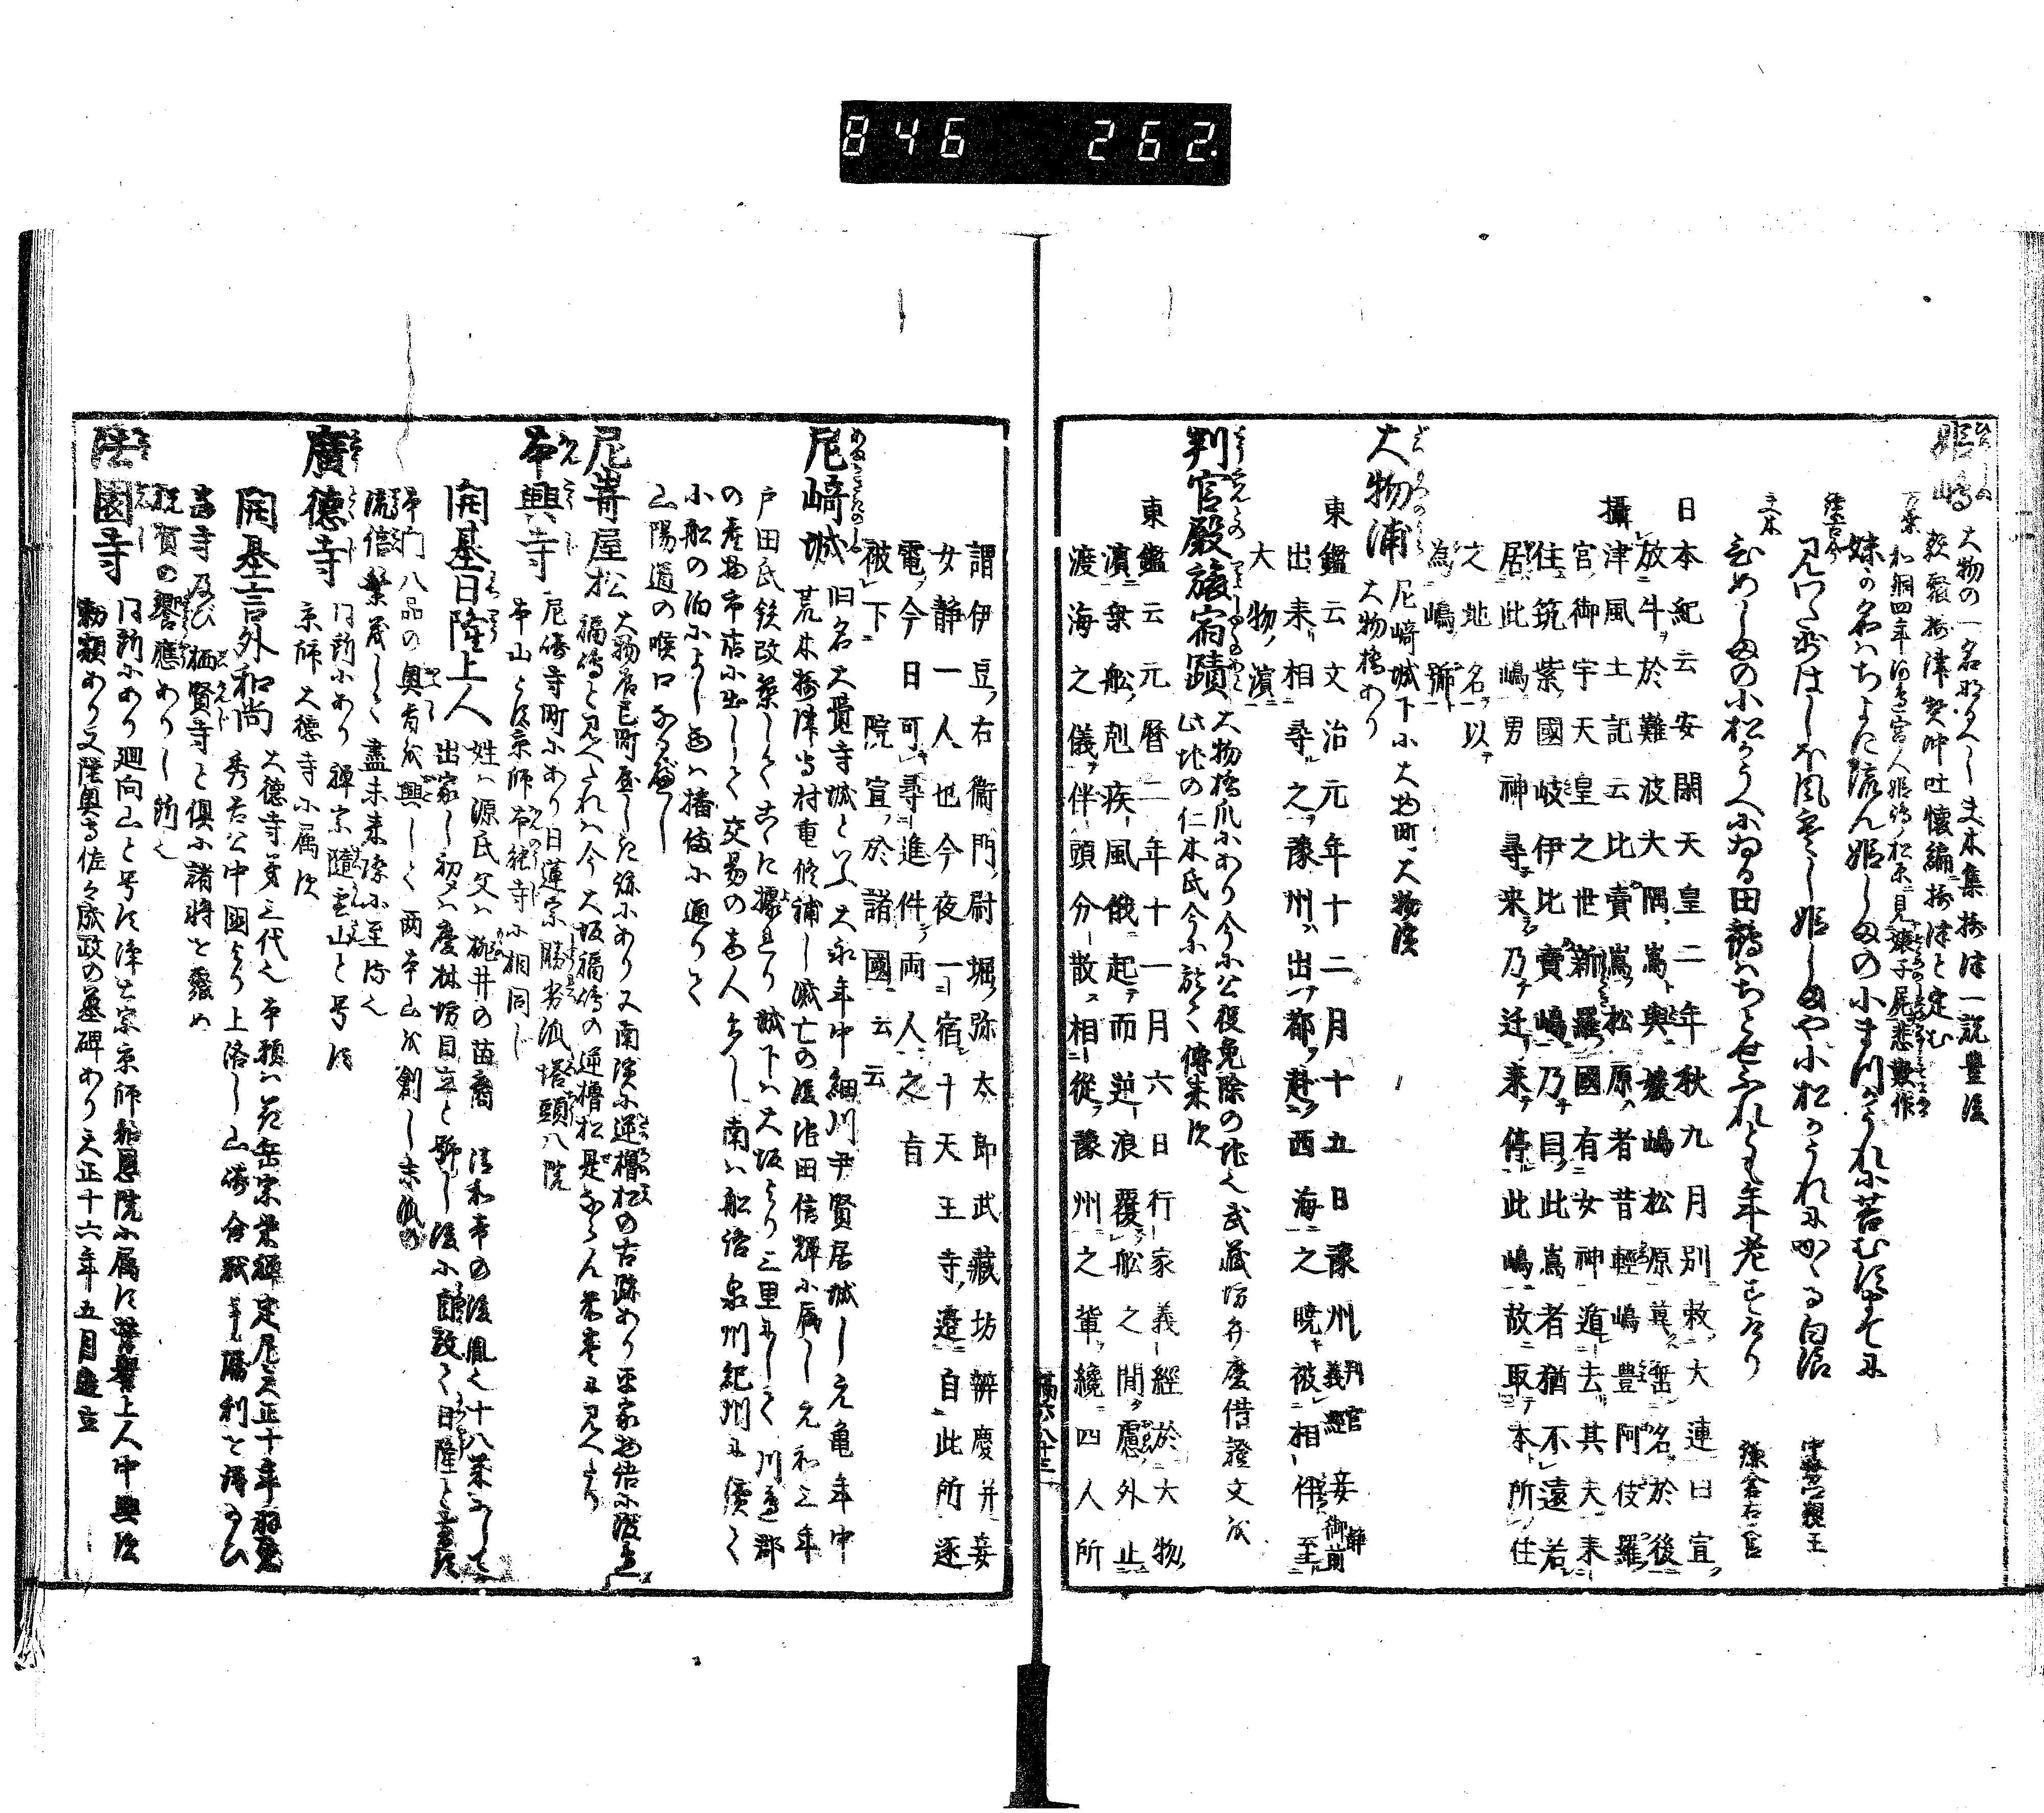 846 262.
姫嶋 大物の一名なるべし夫木集摂津一説豊後
歌蕢摂津契沖吐懐編ニ摂津と定む
万葉 和銅四年河邊宮人姫嶋ノ松原ニ見嬢子屍悲歎作
妹が名はちよに流ん姫しまの小まつがうれに苔むすまでに
続古今 見わたせばしほ風さむし姫しまや小松がうれにかゝる白浪 中務卿親王
夫木 ひめしまの小松がうへにゐる田鶴はちとせふれども年老ずけり 鎌倉右大臣
日本紀云安閑天皇二年秋九月別敕大連曰宜
放牛於難波大隅嶌與媛嶋松原冀垂名於後
攝津風土記云比賣嶌松原者昔輕嶋豊阿伎羅
宮御宇天皇之世新羅國有女神遁去其夫来
住筑紫國岐伊比賣嶋乃曰此嶌者猶不遠若
居此嶋男神尋来乃迁来停此嶋故取本所住
之地名以
為嶋號
大物浦 尼崎城下に大物町大物濱
大物橋あり
東鑑云文治元年十二月十五日豫州判官義經妾静御前
出来相尋之豫州出都赴西海之暁被相伴至
大物濱
判官殿旅宿蹟 大物橋爪にあり今に公役免除の地也武蔵坊弁慶借證文を
此地の仁木氏今に於て傳来す
東鑑云元暦二年十一月六日行家義經於大物
濱乗舩剋疾風俄起而逆浪覆舩之間慮外止
渡海之儀伴頭分散相從豫州之輩纔四人所
満六ノ八十三
謂伊豆右衛門尉堀弥太郎武蔵坊辨慶并妾
女静一人也今夜一宿于天王寺邊自此所逐
電今日可尋進件両人之旨
被下 院宣於諸國云云
尼﨑城 旧名大覺寺城といふ大永年中細川尹賢居城し元亀年中
荒木摂津守村重修補し滅亡の後池田信輝に属し元和三年
戸田氏鉄改築してこゝに據せり城下は大坂より三里にして川邊郡
の産物市店に出して交易の商人多し南は舩徑泉州紀州に續て
小船の泊によし西は播備に通りて
山陽道の喉口なる歟
尼嵜屋松 大物屋巳町屋しき弥にあり又南濱に逆櫓松の古跡あり平家物語に渡邊
福嶋と見へたれは今大坂福嶋の逆櫓松是ならん其巻に見へたり
本興寺 尼崎寺町にあり日蓮宗勝劣派塔頭八院
本山とす京師本能寺に相同じ
開基日隆上人 姓は源氏父は桃井の苗裔 清和帝の後胤也十八才にして
出家し初は慶林坊日立と号し後に諱改て日隆と号す
本門八品の奥旨を興して両本山を創し末派の
流倍繁茂して盡未来際に至る也
廣徳寺 同所にあり禅宗隨雲山と号す
京師大徳寺に属す
開基言外和尚 大徳寺第三代也本願は花岳宗栄禅定尼天正十年羽柴
秀吉公中國より上洛し山崎合戦に勝利を得給ひ
當寺及び栖賢寺と倶に諸将を饗め
祝賀の饗應ありし所也
法園寺 同所にあり廻向山と号す浄土宗京師知恩院に属す深譽上人中興す
勅額あり又陸奥守佐々成政の墓碑あり天正十六年五月建立